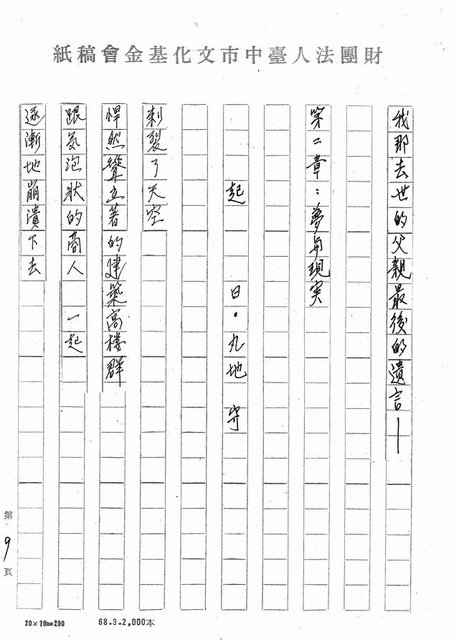 財團法人臺中市文化基金會稿紙
我那去世的父親最後的遺言——
第二章：夢与現实
起　日・丸地　守
刺裂了天空
悍然聳立著的建築高樓群
跟氣泡狀的商人　一起
逐漸地崩潰下去
第9頁
20×10=200　68.3.2,000本